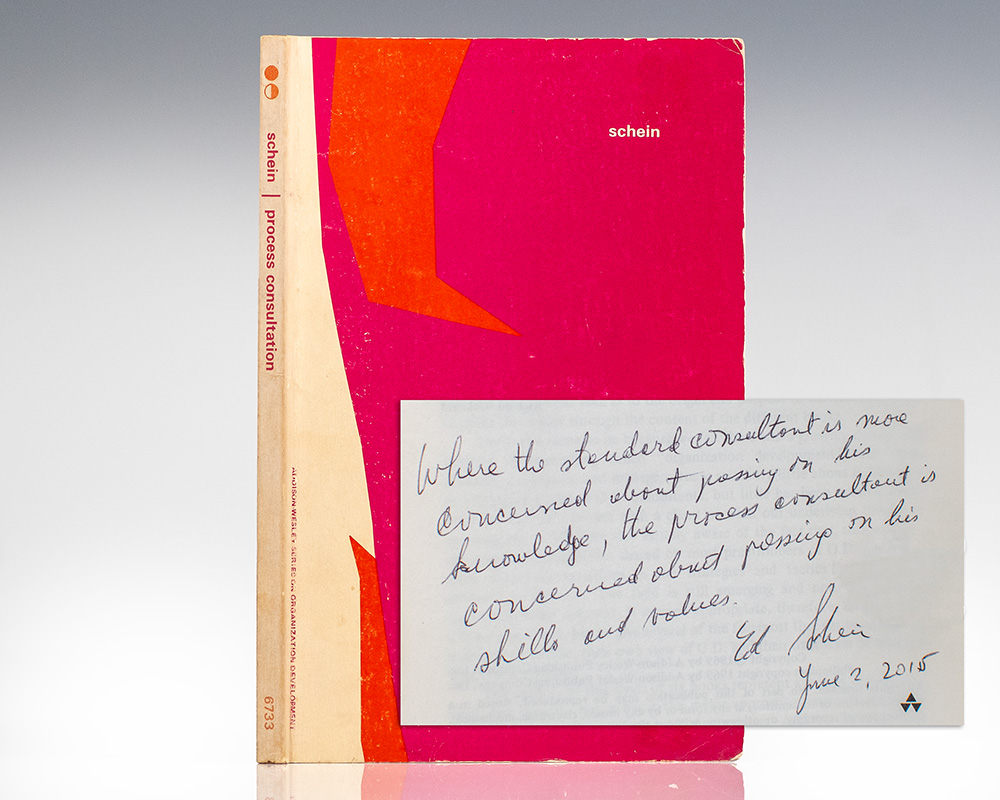 schein | process consultation
ADDISON-WESLEY SERIES ON ORGANIZATION DEVELOPMENT
6733
schein
Where the standard consultant is more
concerned about passing on his
knowledge, the process consultant is
concerned about passing on his
skills and values.
Ed Schein
June 2, 2015